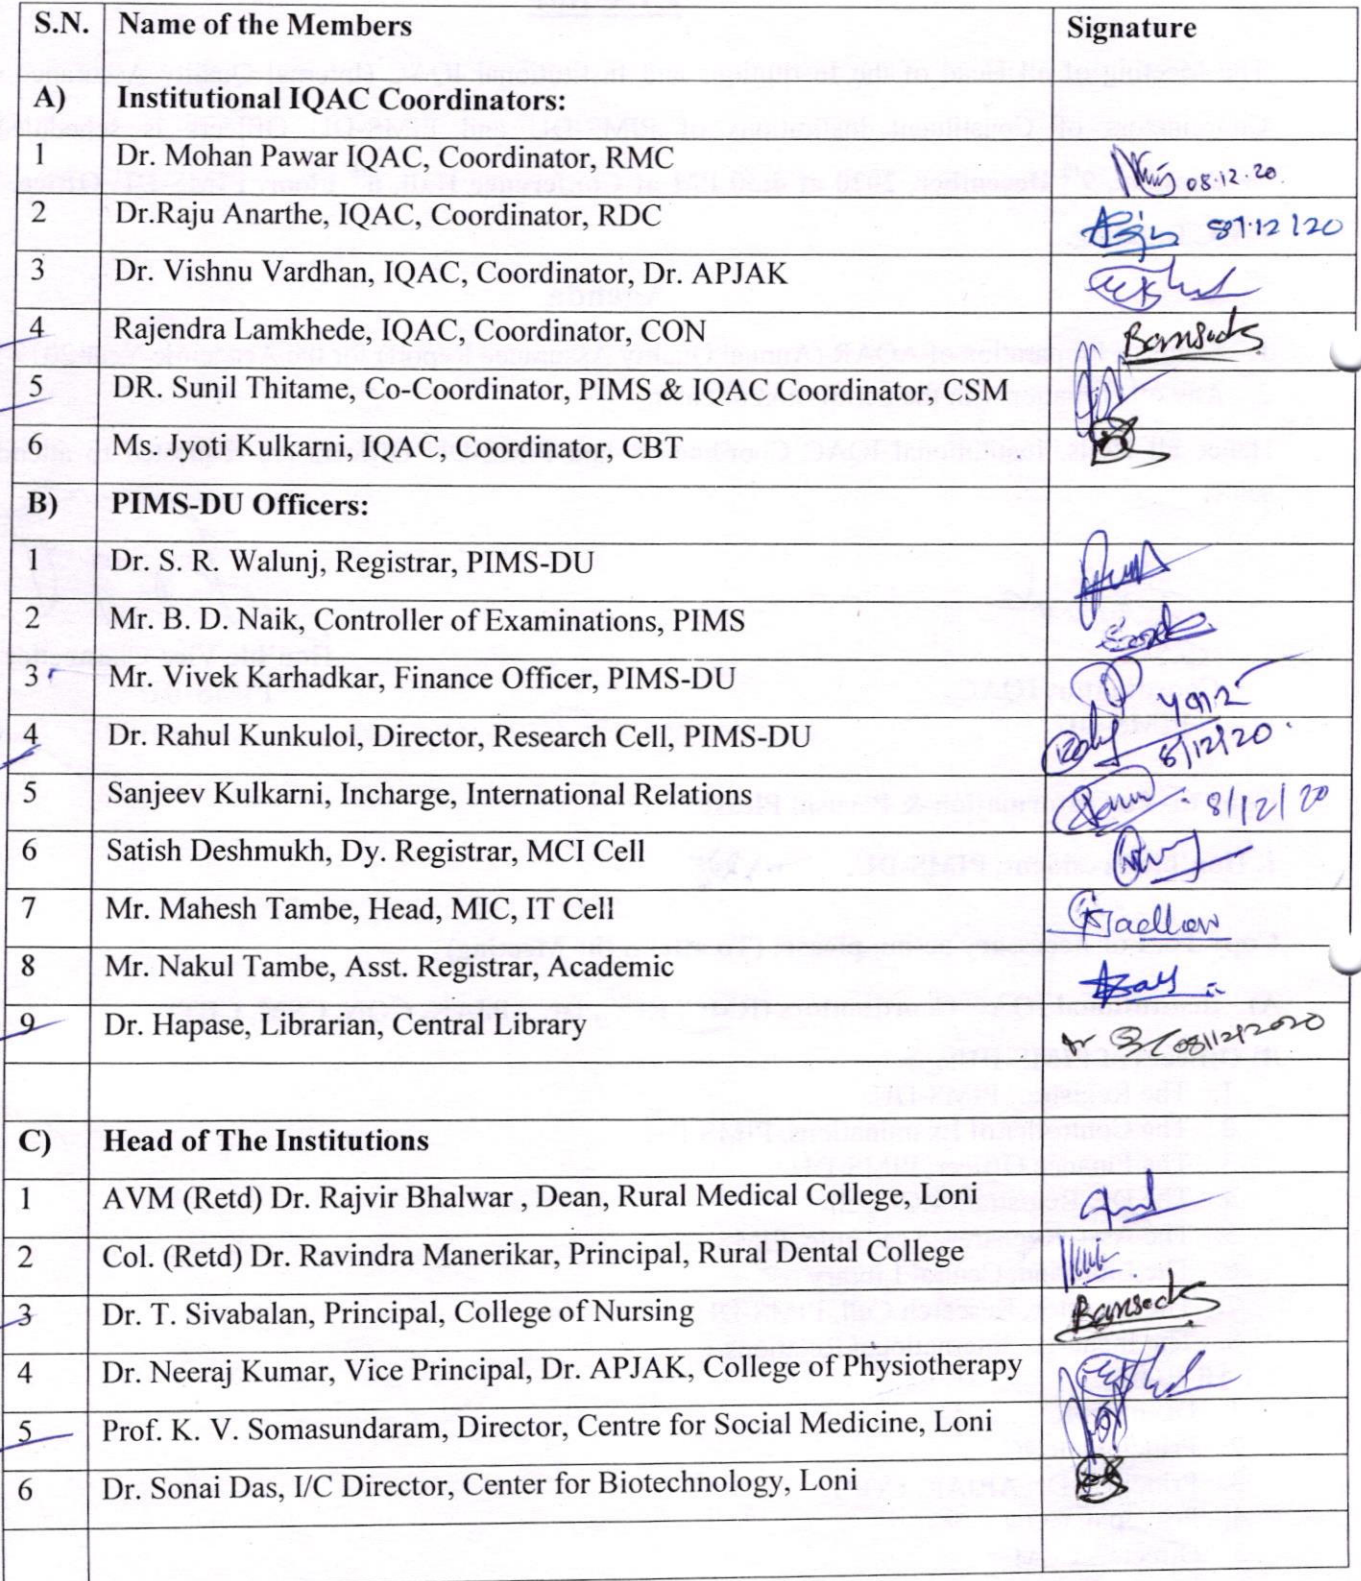 S.N. Name of the Members Signature
A) Institutional IQAC Coordinators:
1 Dr. Mohan Pawar IQAC, Coordinator, RMC 08.12.20.
2 Dr.Raju Anarthe, IQAC, Coordinator, RDC
3 Dr. Vishnu Vardhan, IQAC, Coordinator, Dr. APJAK
4 Rajendra Lamkhede, IQAC, Coordinator, CON
5 DR. Sunil Thitame, Co-Coordinator, PIMS & IQAC Coordinator, CSM
6 Ms. Jyoti Kulkarni, IQAC, Coordinator, CBT
B) PIMS-DU Officers:
1 Dr. S. R. Walunj, Registrar, PIMS-DU
2 Mr. B. D. Naik, Controller of Examinations, PIMS
3 Mr. Vivek Karhadkar, Finance Officer, PIMS-DU
4 Dr. Rahul Kunkulol, Director, Research Cell, PIMS-DU 8/12/20.
5 Sanjeev Kulkarni, Incharge, International Relations 8/12/20
6 Satish Deshmukh, Dy. Registrar, MCI Cell
7 Mr. Mahesh Tambe, Head, MIC, IT Cell
8 Mr. Nakul Tambe, Asst. Registrar, Academic
9 Dr. Hapase, Librarian, Central Library 08/12/2020
C) Head of The Institutions
1 AVM (Retd) Dr. Rajvir Bhalwar , Dean, Rural Medical College, Loni
2 Col. (Retd) Dr. Ravindra Manerikar, Principal, Rural Dental College
3 Dr. T. Sivabalan, Principal, College of Nursing
4 Dr. Neeraj Kumar, Vice Principal, Dr. APJAK, College of Physiotherapy
5 Prof. K. V. Somasundaram, Director, Centre for Social Medicine, Loni
6 Dr. Sonai Das, I/C Director, Center for Biotechnology, Loni